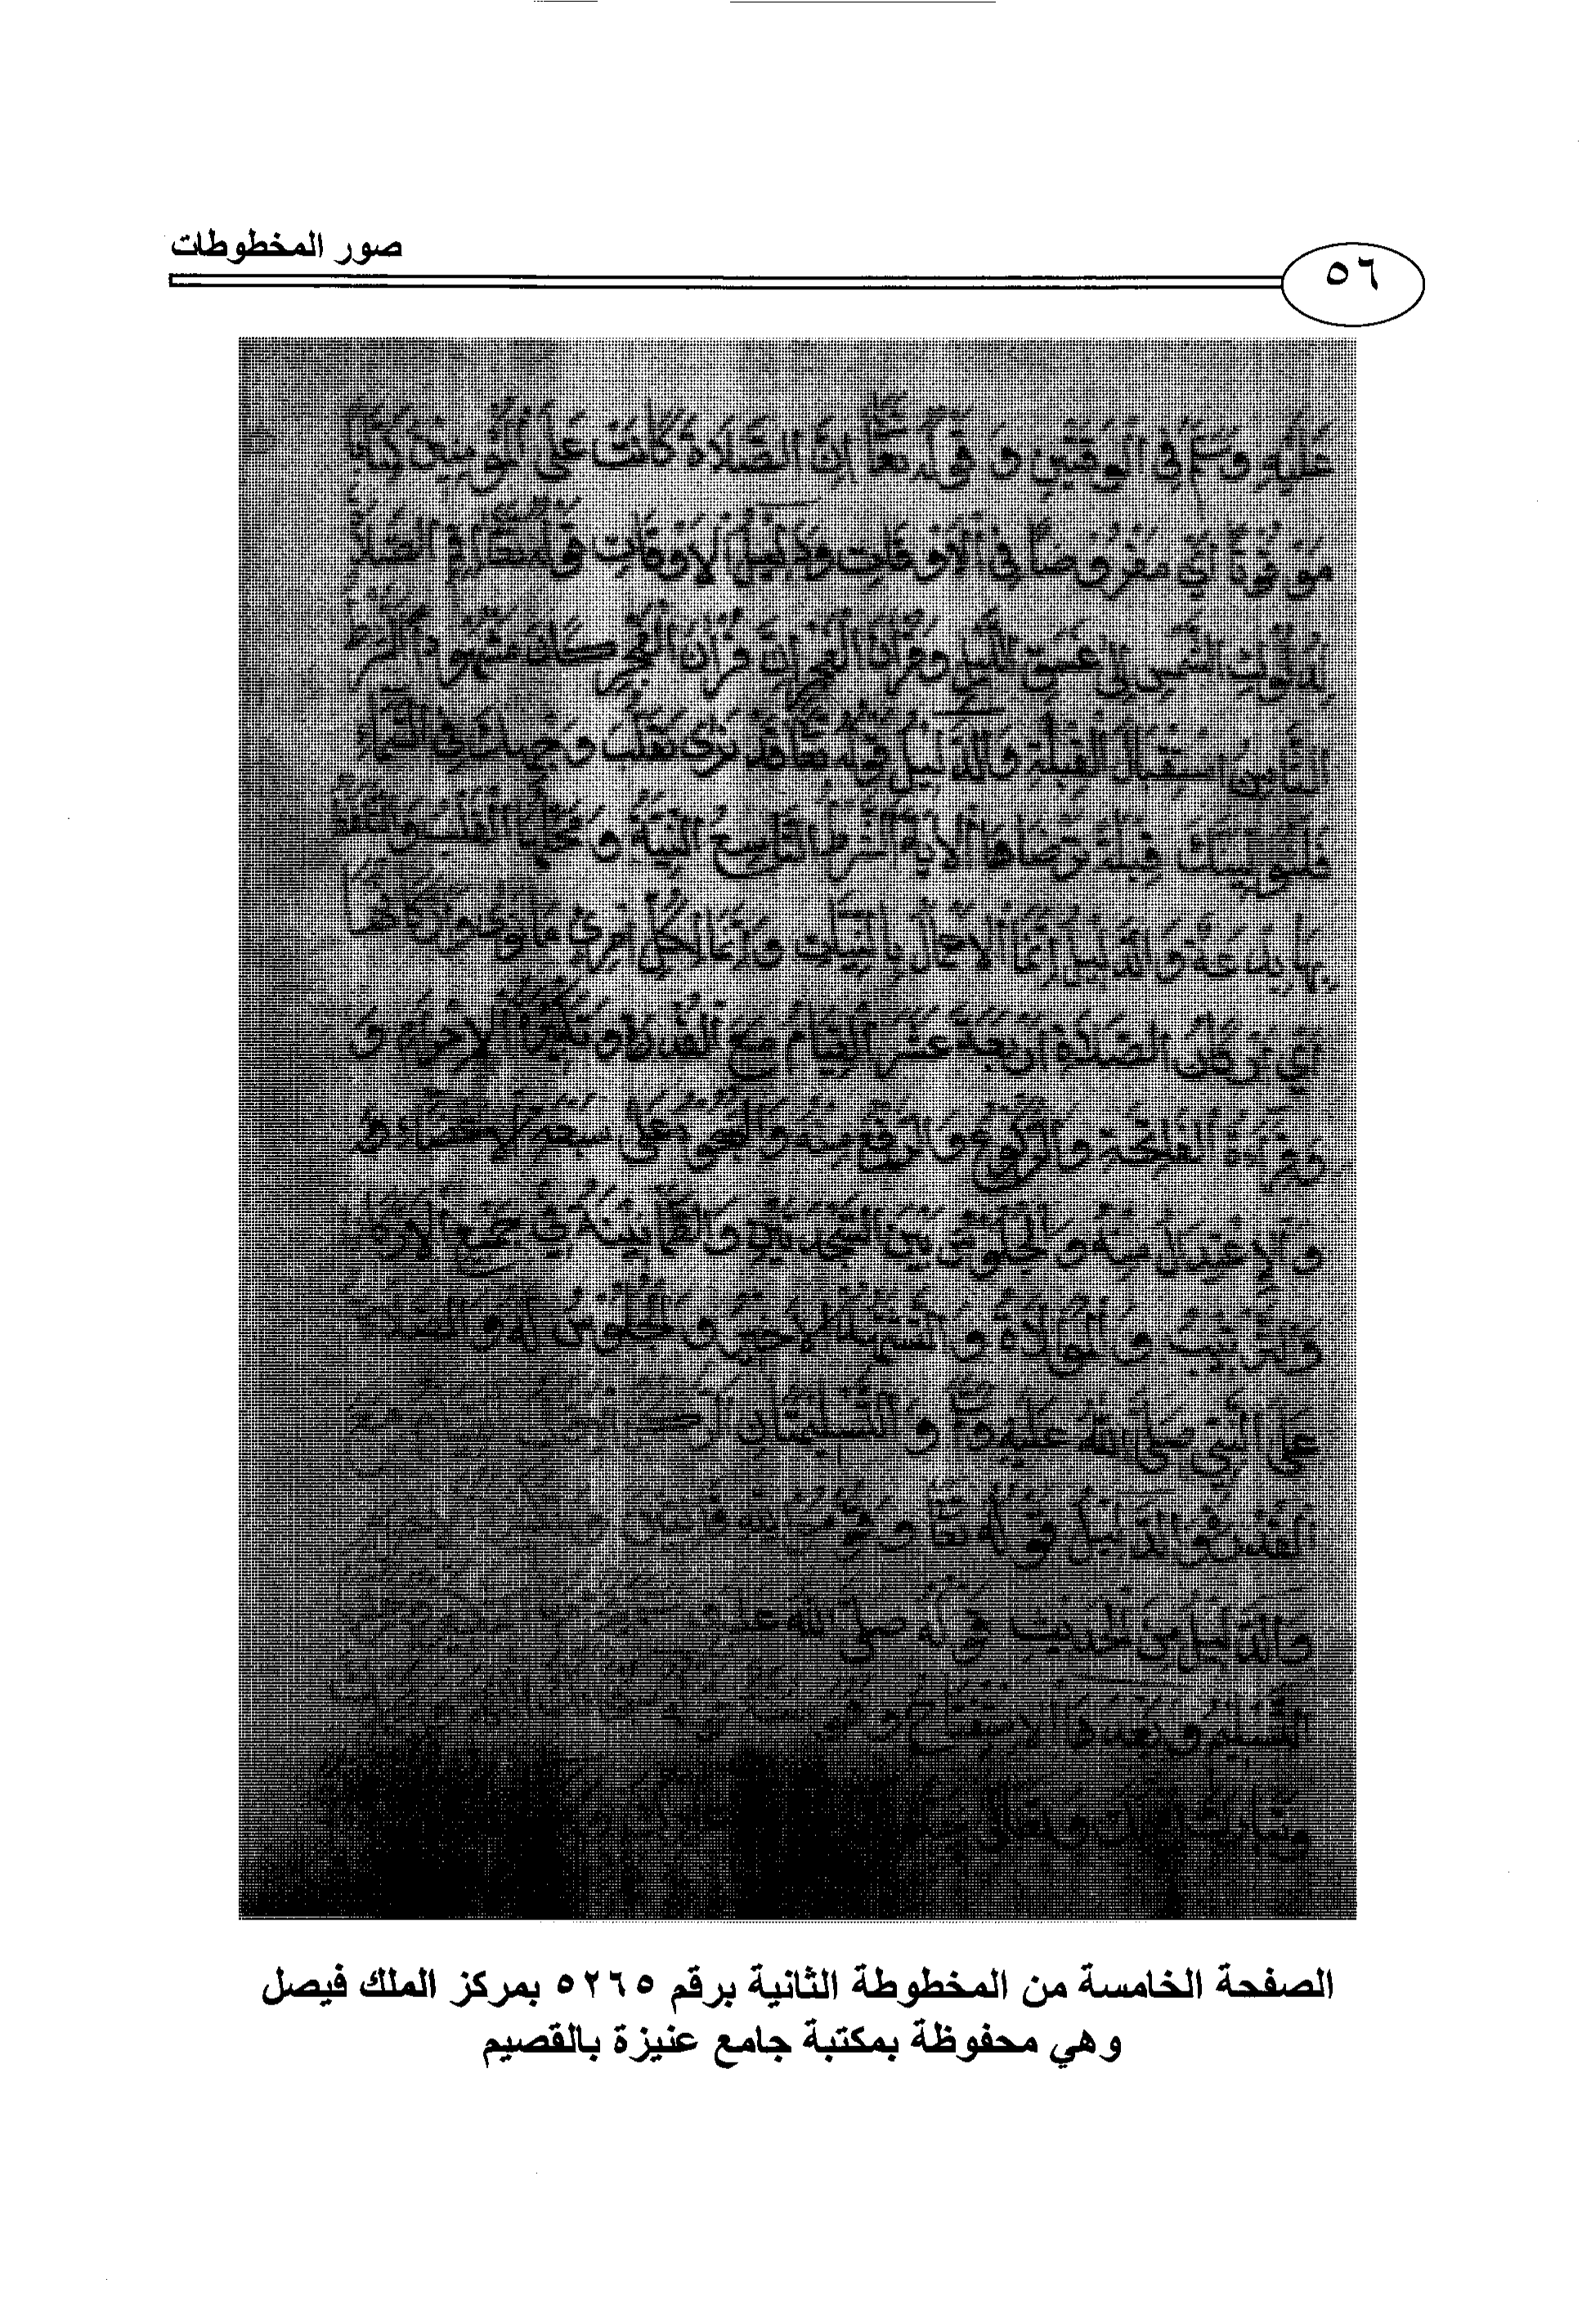 صور المخطوطات
٥٦
عَلَيْهِ وسلم فِي الْوَقْتَيْنِ وَ قَوْلُهُ تَعَا إِنَّ الصَّلَاةَ كَانَتْ عَلَى الْمُؤْمِنِيْنَ كِتَابًا
مَوْقُوتًا أَيْ مَفْرُوضًا فِي الْأَوْقَاتِ وَدَلِيْلُ الْأَوْقَاتِ قَوْلُهُ تَعَا أَقِمِ الصَّلَاةَ
لِدُلُوكِ الشَّمْسِ إِلَى غَسَقِ اللَّيْلِ وَقُرْآنَ الْفَجْرِ إِنَّ قُرْآنَ الْفَجْرِ كَانَ مَشْهُودًا الشرط
الثَّامِنُ اسْتِقْبَالُ الْقِبْلَةِ وَالدَّلِيْلُ قَوْلُهُ تَعَا قَدْ نَرَى تَقَلُّبَ وَجْهِكَ فِي السَّمَاءِ
فَلَنُوَلِّيَنَّكَ قِبْلَةً تَرْضَاهَا الْآيَةَ الشَّرْطُ التَّاسِعُ النِّيَّةُ وَمَحَلُّهَا الْقَلْبُ وَالتَّلَفُّظُ
بِهَا بِدْعَةٌ وَالدَّلِيْلُ إِنَّمَا الْأَعْمَالُ بِالنِّيَّاتِ وَإِنَّمَا لِكُلِّ امْرِئٍ مَا نَوَى
أَيْ أَرْكَانُ الصَّلَاةِ أَرْبَعَةَ عَشَرَ الْقِيَامُ مَعَ الْقُدْرَةِ وَتَكْبِيْرَةُ الْإِحْرَامِ وَ
وَقِرَاءَةُ الْفَاتِحَةِ وَالرُّكُوْعُ وَالرَّفْعُ مِنْهُ وَالسُّجُوْدُ عَلَى سَبْعَةِ الْأَعْضَاءِ وَ
وَالْإِعْتِدَالُ مِنْهُ وَالْجُلُوْسُ بَيْنَ السَّجْدَتَيْنِ وَالطُّمَأْنِيْنَةُ فِي جَمِيْعِ الْأَرْكَانِ
وَالتَّرْتِيْبُ وَالْمُوَالَاةُ وَالتَّشَهُّدُ الْأَخِيْرُ وَالْجُلُوْسُ لَهُ وَالصَّلَاةُ
عَلَى النَّبِيِّ صَلَّى اللهُ عَلَيْهِ وسلم وَالتَّسْلِيْمَتَانِ الرُّكْنُ الْأَوَّلُ الْقِيَامُ مَعَ
الْقُدْرَةِ وَالدَّلِيْلُ قَوْلُهُ تَعَا وَقُوْمُوا لِلهِ قَانِتِيْنَ
وَالدَّلِيْلُ مِنَ الْحَدِيْثِ قَوْلُهُ صَلَّى اللهُ عَلَيْهِ
التَّسْلِيْمُ وَبَعْدَهَا الْإِسْتِفْتَاحُ وَهُوَ
وَتَبَارَكَ اسْمُكَ وَتَعَالَى
الصفحة الخامسة من المخطوطة الثانية برقم ٥٢٦٥ بمركز الملك فيصل
وهي محفوظة بمكتبة جامع عنيزة بالقصيم